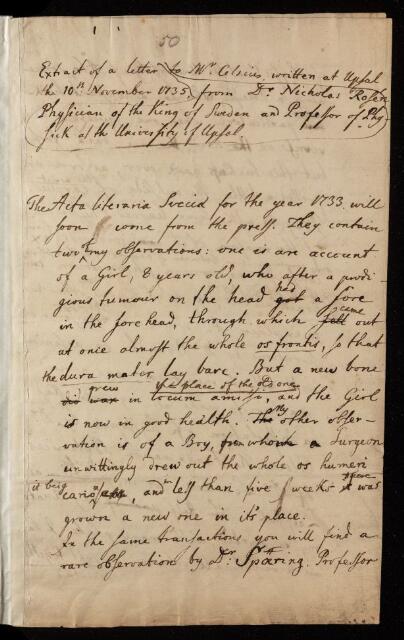 50
Extract of a letter to Mr. Celsius, written at Upsal
the 10th November 1735, from Dr. Nicholas Rosen
Physician of the King of Sweden and Professor of Phy-
sick at the University of Upsal
The Acta literaria Svecia for the year 1733 will
soon come from the press. They contain
two of my observations: one is an account
of a Girl, 8 years old, who after a prodi-
gious tumour on the head had got a sore
in the forehead, through which fell came out
at once almost the whole os frontis, so that
the dura mater lay bare. But a new bone
grew in place of the old one
in locum amissi, and the Girl
is now in good health. The my other obser-
vation is of a Boy, from whom a Surgeon
unwittingly drew out the whole os humeri
it being cariosum, and in less than five weeks there it was
grown a new one in it's place.
In the same transactions you will find a
rare observation by Dr. Spöring Professor